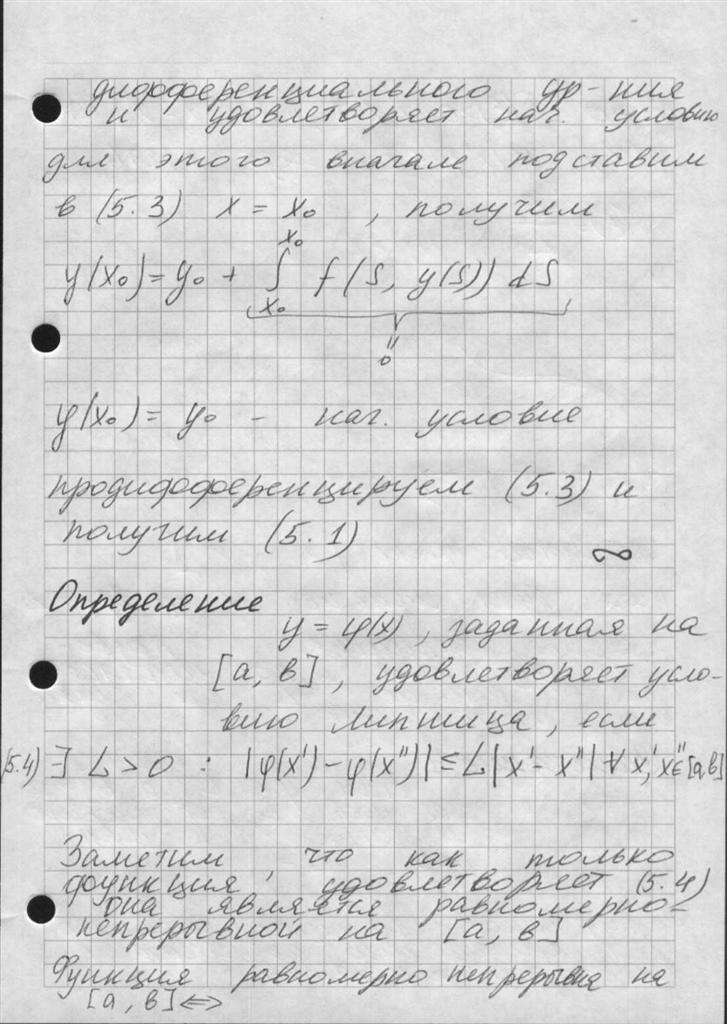 дифференциального ур-ния
и удовлетворяет нач. условию
для этого вначале подставим
в (5.3) x = x₀ , получим
y(x₀) = y₀ + ∫ₓ₀ˣ⁰ f(s, y(s)) ds
"
0
y(x₀) = y₀ - нач. условие
продифференцируем (5.3) и
получим (5.1)
Определение
y = φ(x) , заданная на
[a, в] , удовлетворяет усло-
вию Липшица, если
(5.4) ∃ L > 0 : |φ(x') - φ(x'')| ≤ L|x' - x''| ∀ x', x'' ∈ [a,в]
Заметим, что как только
функция удовлетворяет (5.4)
она является равномерно-
непрерывной на [a, в]
Функция равномерно непрерывна на
[a, в] <=>